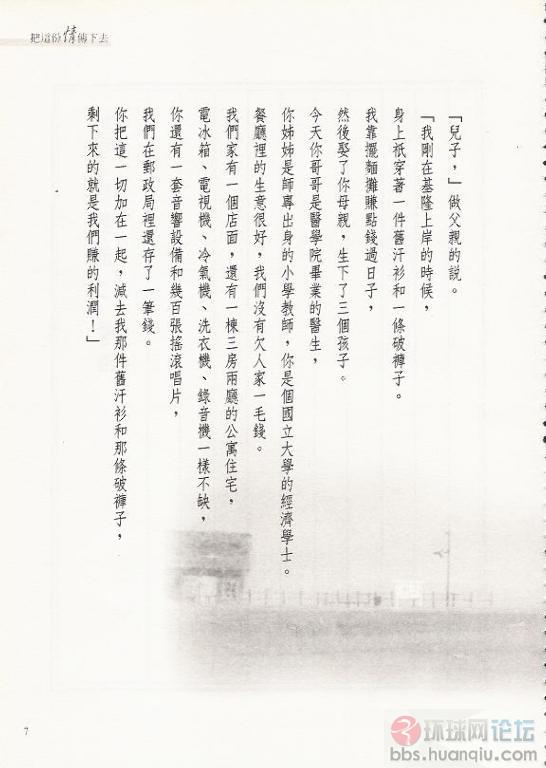 把這份情傳下去
「兒子，」做父親的說。
「我剛在基隆上岸的時候，
身上祇穿著一件舊汗衫和一條破褲子。
我靠擺麵攤賺點錢過日子，
然後娶了你母親，生下了三個孩子。
今天你哥哥是醫學院畢業的醫生，
你姊姊是師專出身的小學教師，你是個國立大學的經濟學士。
餐廳裡的生意很好，我們沒有欠人家一毛錢。
我們家有一個店面，還有一棟三房兩廳的公寓住宅，
電冰箱、電視機、冷氣機、洗衣機、錄音機一樣不缺，
你還有一套音響設備和幾百張搖滾唱片，
我們在郵政局裡還存了一筆錢。
你把這一切加在一起，減去我那件舊汗衫和那條破褲子，
剩下來的就是我們賺的利潤！」
7
环球网论坛
bbs.huanqiu.com